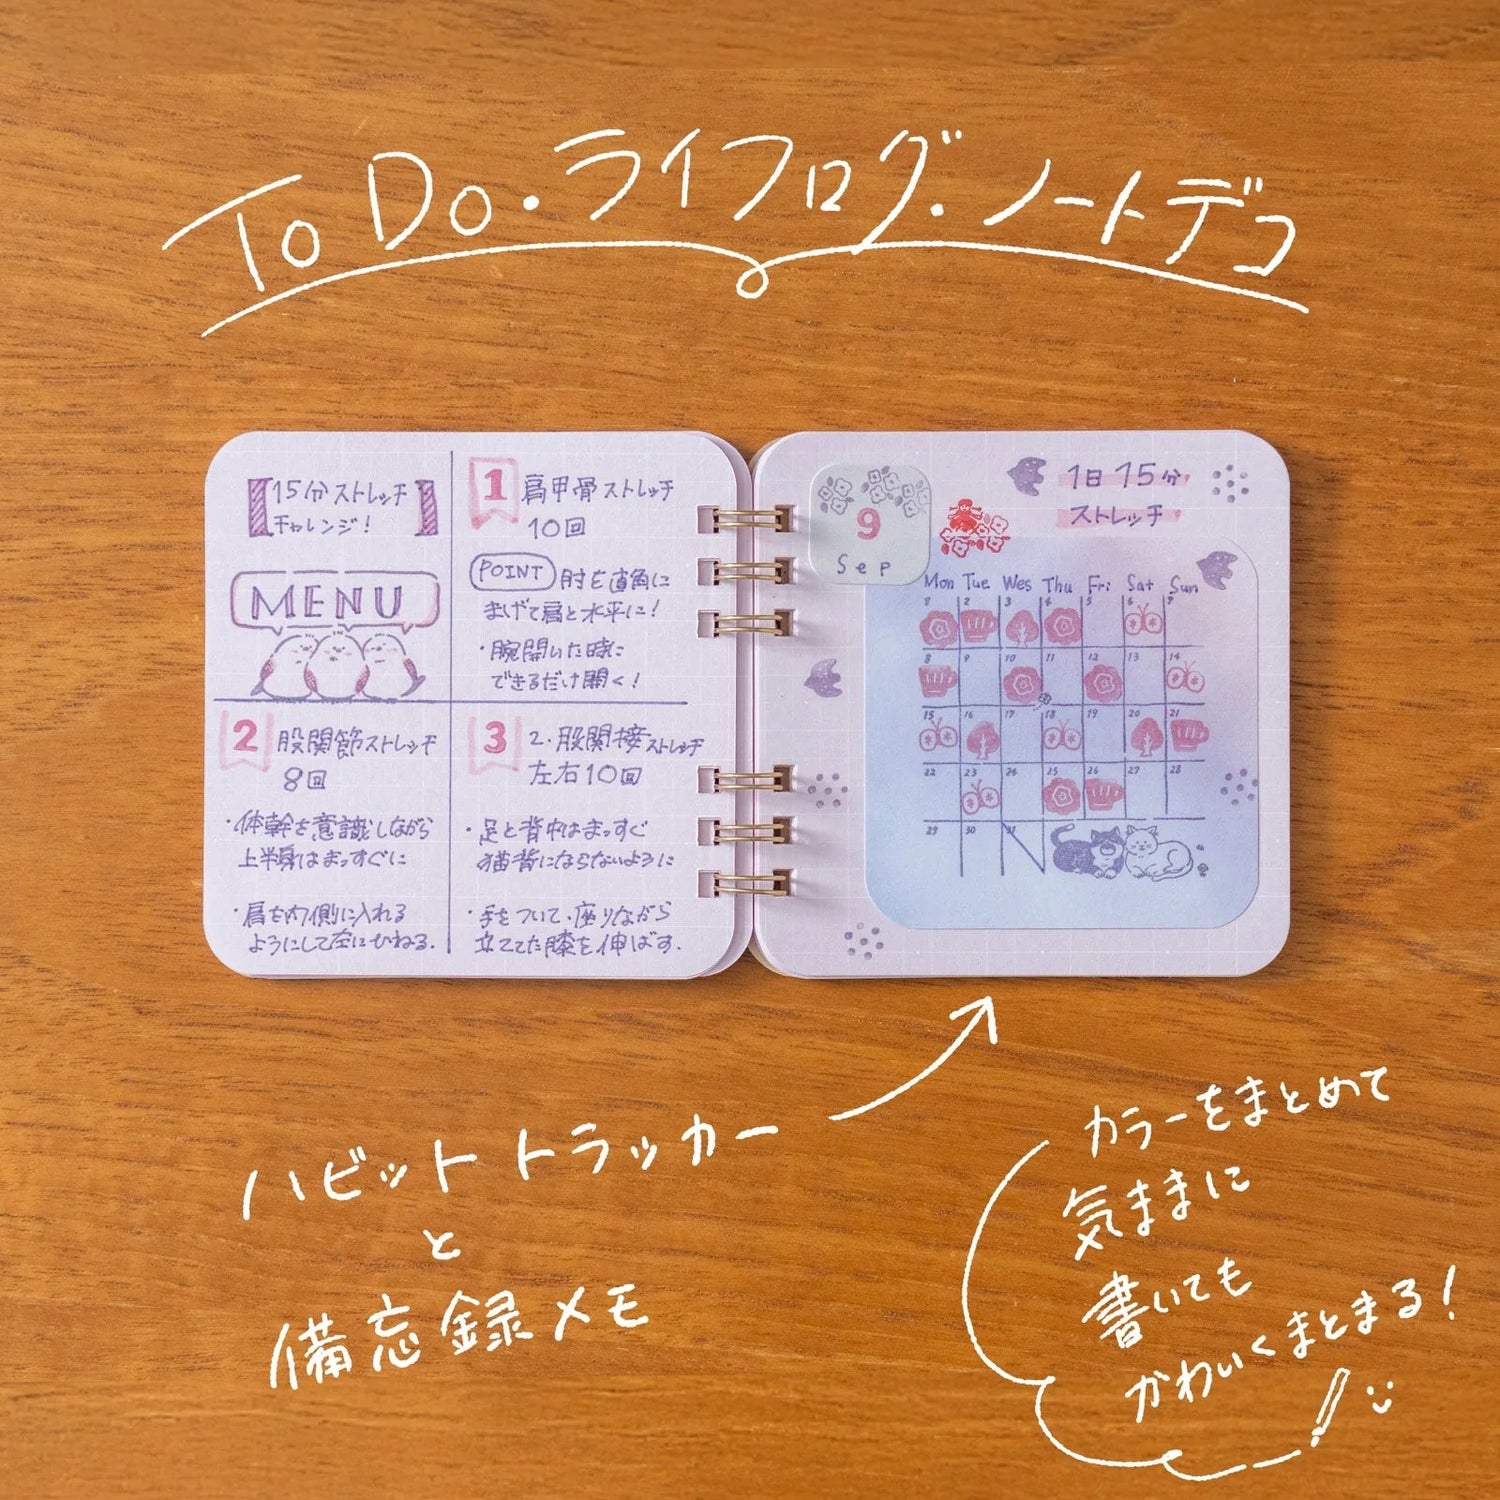 To Do・ライフログ・ノートデコ
15分ストレッチ
チャレンジ！
MENU
1 肩甲骨ストレッチ
10回
POINT 肘を直角に
まげて肩と水平に！
・腕開いた時に
できるだけ開く！
2 股関節ストレッチ
8回
・体幹を意識しながら
上半身はまっすぐに
・肩を内側に入れる
ようにして左にひねる.
3 2.股関接ストレッチ
左右10回
・足と背中はまっすぐ
猫背にならないように
・手をついて、座りながら
立ててた膝を伸ばす.
9
Sep
1日15分
ストレッチ
Mon Tue Wes Thu Fri Sat Sun
1 2 3 4 5 6 7
8 9 10 11 12 13 14
15 16 17 18 19 20 21
22 23 24 25 26 27 28
29 30 31
ハビットトラッカー
と
備忘録メモ
カラーをまとめて
気ままに
書いても
かわいくまとまる！